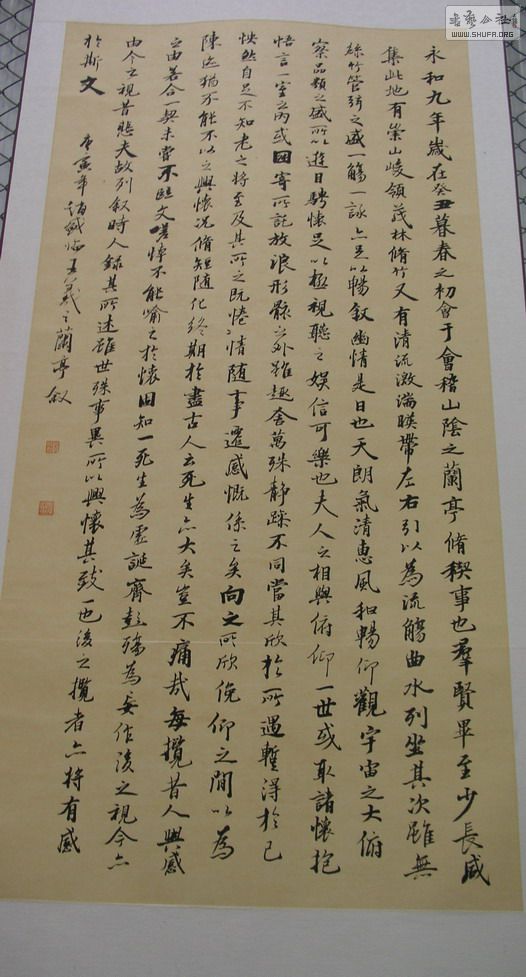 永和九年歲在癸丑暮春之初會于會稽山陰之蘭亭脩稧事也羣賢畢至少長咸
集此地有崇山峻領茂林脩竹又有清流激湍暎帶左右引以為流觴曲水列坐其次雖無
絲竹管弦之盛一觴一詠亦足以暢叙幽情是日也天朗氣清惠風和暢仰觀宇宙之大俯
察品類之盛所以遊目騁懷足以極視聽之娛信可樂也夫人之相與俯仰一世或取諸懷抱
悟言一室之內或因寄所託放浪形骸之外雖趣舍萬殊靜躁不同當其欣於所遇暫得於己
怏然自足不知老之將至及其所之既惓情隨事遷感慨係之矣向之所欣俛仰之間以為
陳迹猶不能不以之興懷況脩短隨化終期於盡古人云死生亦大矣豈不痛哉每攬昔人興感
之由若合一契未嘗不臨文嗟悼不能喻之於懷固知一死生為虛誕齊彭殤為妄作後之視今亦
由今之視昔悲夫故列叙時人錄其所述雖世殊事異所以興懷其致一也後之攬者亦將有感
於斯文
庚寅年 臨王羲之蘭亭叙
書藝公社
WWW.SHUFA.ORG